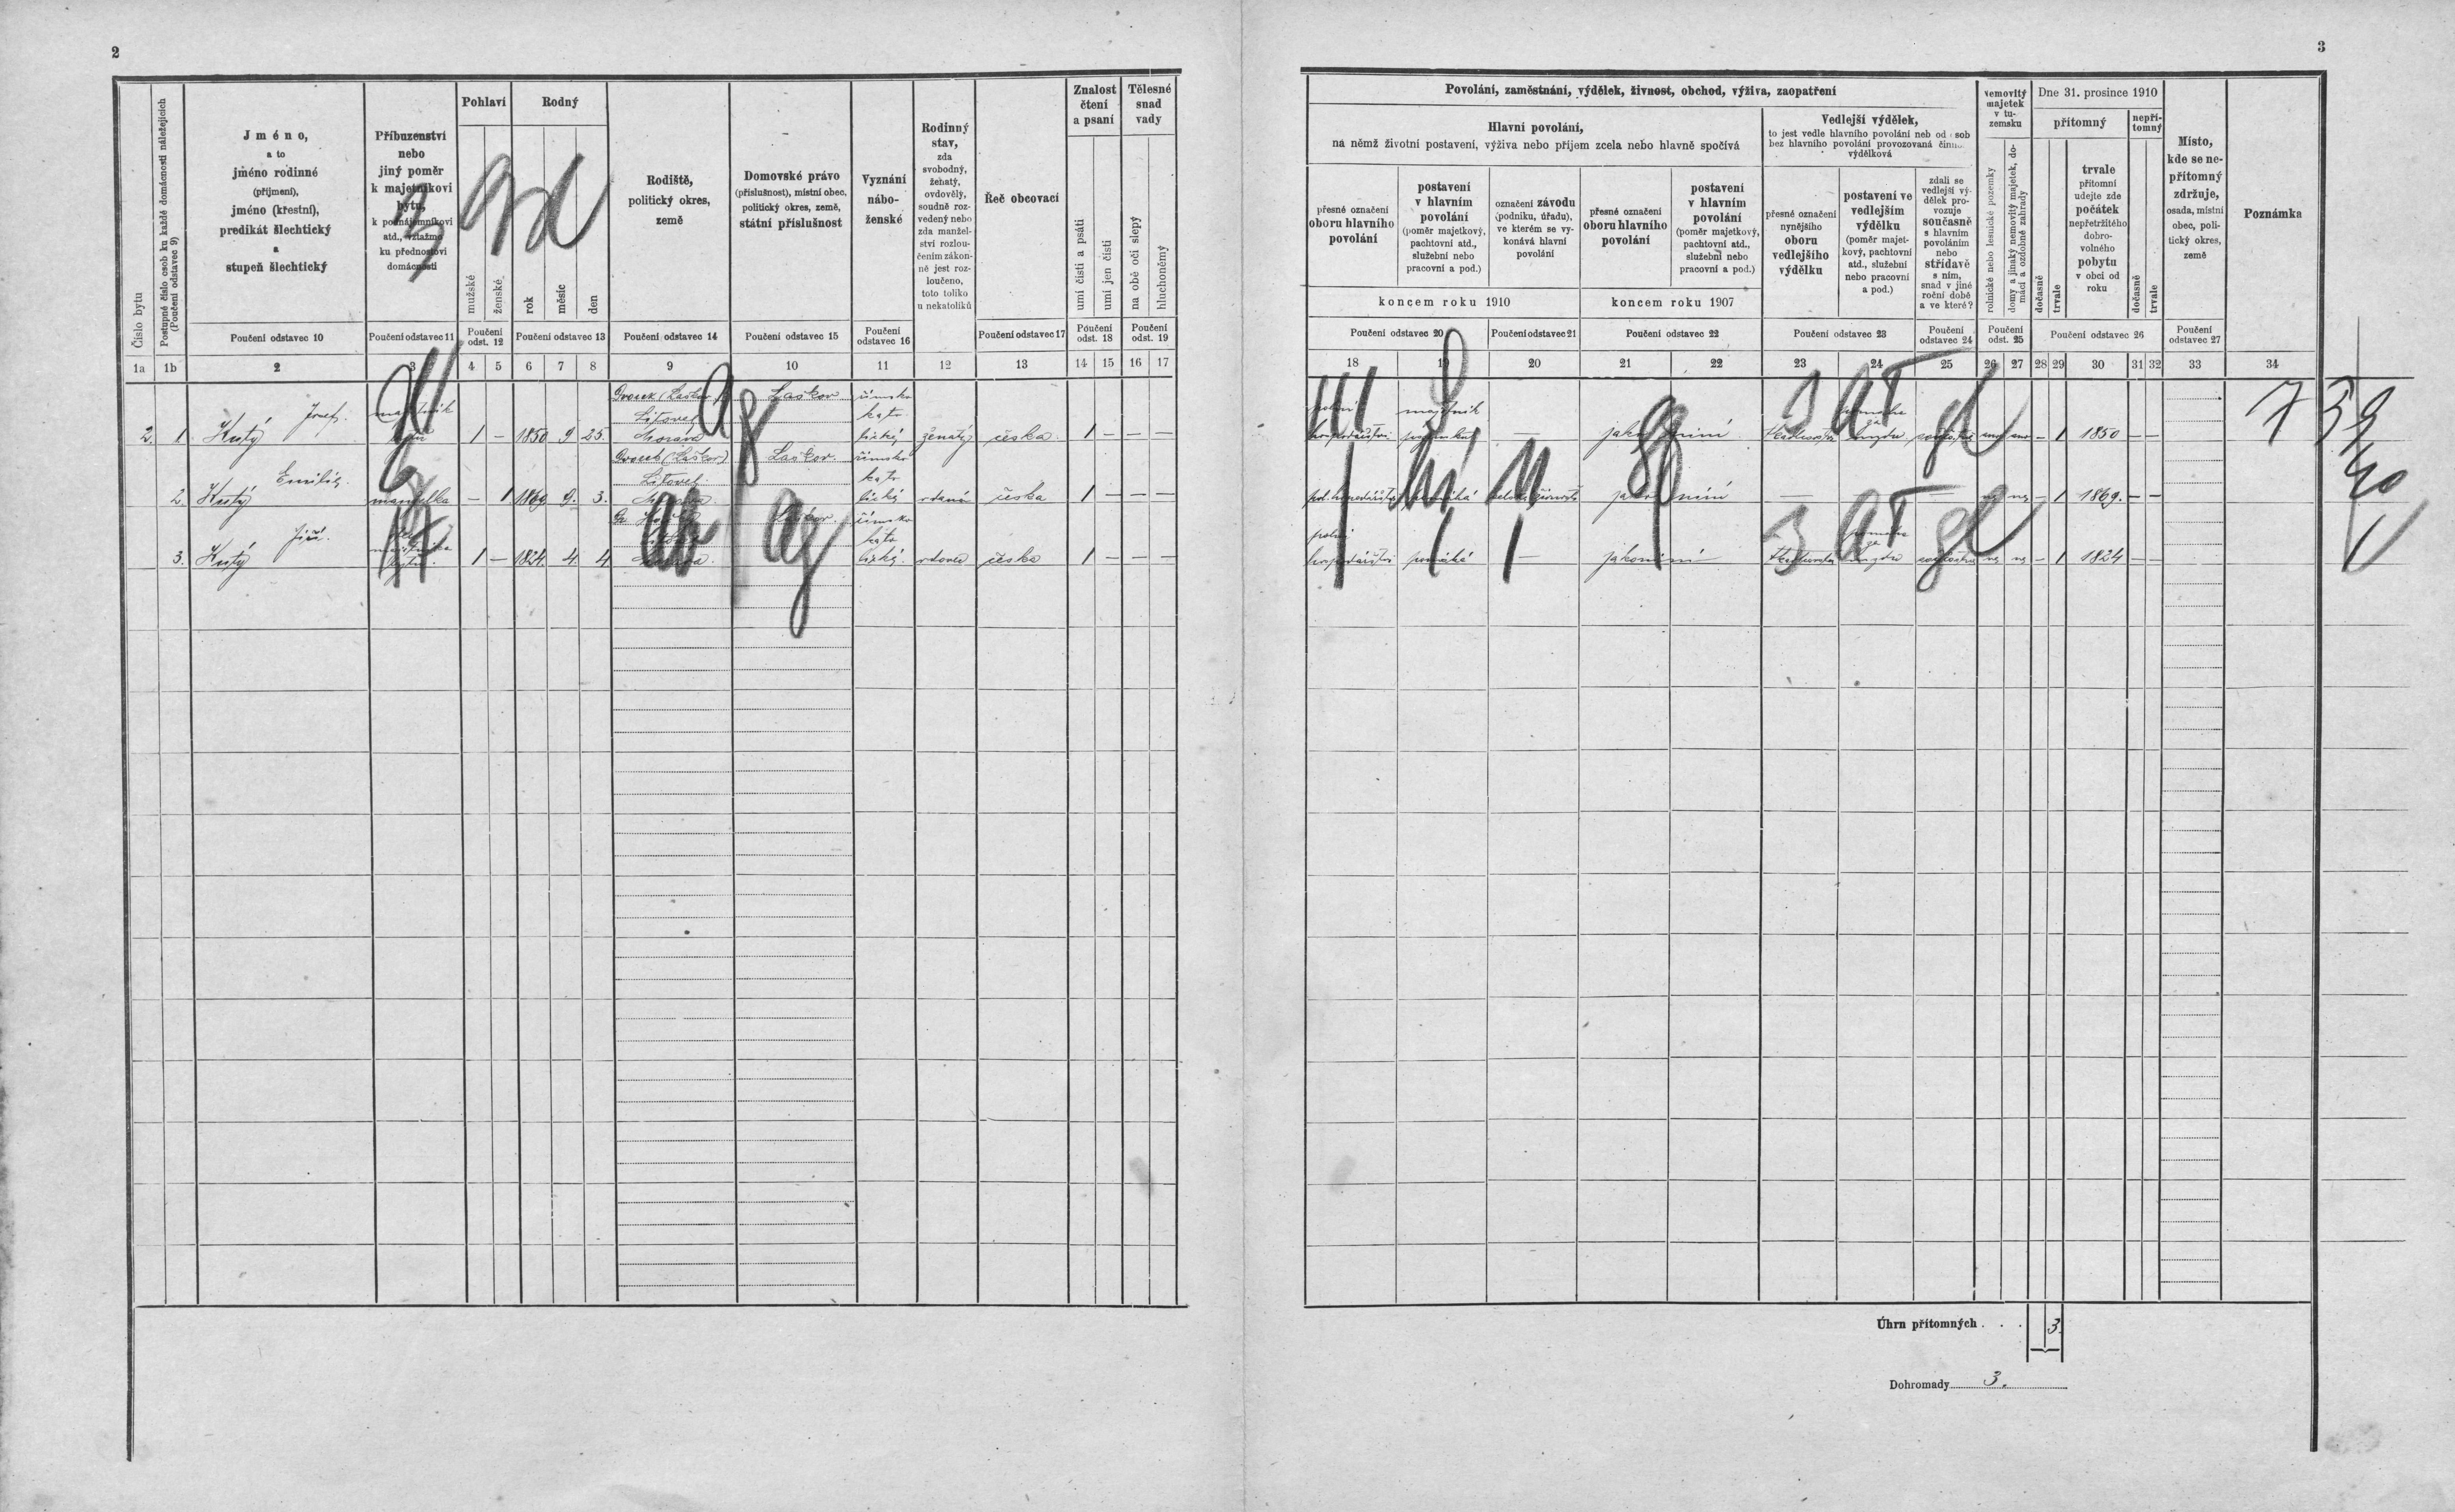 2
3
Číslo bytu
Postupné číslo osob ku každé domácnosti náležejících
(Poučení odstavec 9)
Jméno,
a to
jméno rodinné
(příjmení),
jméno (křestní),
predikát šlechtický
a
stupeň šlechtický
Příbuzenství
nebo
jiný poměr
k majetníkovi
bytu,
k podnájemníkovi
atd., vztažmo
ku přednostovi
domácnosti
Pohlaví
mužské
ženské
Rodný
rok
měsíc
den
Rodiště,
politický okres,
země
Domovské právo
(příslušnost), místní obec,
politický okres, země,
státní příslušnost
Vyznání
nábo-
ženské
Rodinný
stav,
zda
svobodný,
ženatý,
ovdovělý,
soudně roz-
vedený nebo
zda manžel-
ství rozlou-
čením zákon-
ně jest roz-
loučeno,
toto toliko
u nekatolíků
Řeč obcovací
Znalost
čtení
a psaní
umí čísti a psáti
umí jen čísti
Tělesné
snad
vady
na obě oči slepý
hluchoněmý
Poučení odstavec 10
Poučení odstavec 11
Poučení odst. 12
Poučení odstavec 13
Poučení odstavec 14
Poučení odstavec 15
Poučení odstavec 16
Poučení odstavec 17
Poučení odst. 18
Poučení odst. 19
1a 1b 2 3 4 5 6 7 8 9 10 11 12 13 14 15 16 17
Josef.
Dvorek (Laškov)
Laškov
římsko
Litovel
kato
2. 1. Kutý
bytu 1 – 1850 9 25.
Morava
lický ženatý česká 1 – – –
Emilie
Dvorek (Laškov)
Laškov
římsko
Litovel
kato
2. Kutý manželka – 1 1869 9. 3.
lický vdaná česká 1 – – –
Jiří.
Laškov
římsko
kato
3. Kutý bytu. 1 – 1824. 4. 4
Morava
lický. vdovec česká 1 – – –
Povolání, zaměstnání, výdělek, živnost, obchod, výživa, zaopatření
Hlavní povolání,
na němž životní postavení, výživa nebo příjem zcela nebo hlavně spočívá
přesné označení
oboru hlavního
povolání
postavení
v hlavním
povolání
(poměr majetkový,
pachtovní atd.,
služební nebo
pracovní a pod.)
označení závodu
(podniku, úřadu),
ve kterém se vy-
konává hlavní
povolání
přesné označení
oboru hlavního
povolání
postavení
v hlavním
povolání
(poměr majetkový,
pachtovní atd.,
služební nebo
pracovní a pod.)
koncem roku 1910
koncem roku 1907
Vedlejší výdělek,
to jest vedle hlavního povolání neb od osob
bez hlavního povolání provozovaná činn...
výdělková
přesné označení
nynějšího
oboru
vedlejšího
výdělku
postavení ve
vedlejším
výdělku
(poměr majet-
kový, pachtovní
atd., služební
nebo pracovní
a pod.)
zdali se
vedlejší vý-
dělek pro-
vozuje
současně
s hlavním
povoláním
nebo
střídavě
s ním,
snad v jiné
roční době
a ve které?
Nemovitý
majetek
v tu-
zemsku
rolnické nebo lesnické pozemky
domy a jinaký nemovitý majetek, do-
mácí a ozdobné zahrady
Dne 31. prosince 1910
přítomný
dočasně
trvale
trvale
přítomní
udejte zde
počátek
nepřetržitého
dobro-
volného
pobytu
v obci od
roku
nepří-
tomný
dočasně
trvale
Místo,
kde se ne-
přítomný
zdržuje,
osada, místní
obec, poli-
tický okres,
země
Poznámka
Poučení odstavec 20
Poučení odstavec 21
Poučení odstavec 22
Poučení odstavec 23
Poučení odstavec 24
Poučení odst. 25
Poučení odstavec 26
Poučení odstavec 27
18 19 20 21 22 23 24 25 26 27 28 29 30 31 32 33 34
polní
majetník
hospodářství
–
ano ano – 1 1850 – –
ne ne – 1 1869. – –
polní
hospodářství pomáhá –
ne ne – 1 1824 – –
7 39
40
Úhrn přítomných . . . 3.
Dohromady 3.